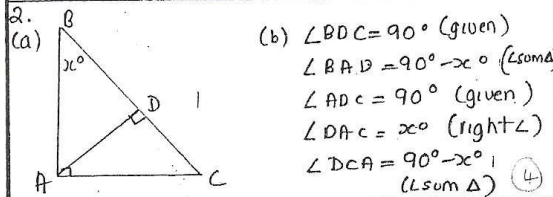 2.
(a)
B
x°
D
1
A
C
(b) ∠BDC = 90° (given)
∠BAD = 90° - x° (∠sum Δ
∠ADC = 90° (given)
∠DAC = x° (right ∠)
∠DCA = 90° - x° 1
(∠sum Δ) 4